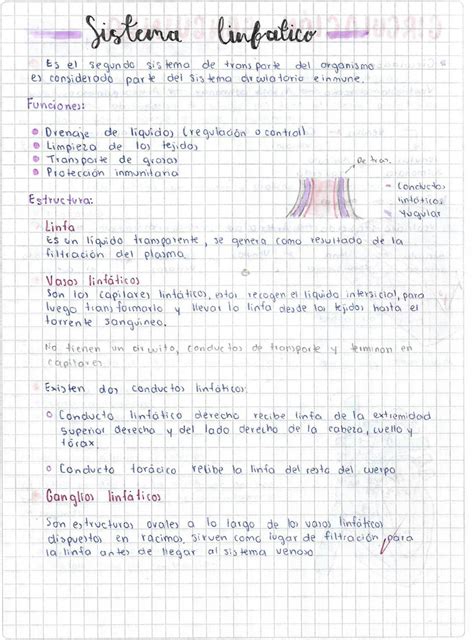 Sistema linfatico
Es el segundo sistema de transporte del organismo
es considerado parte del sistema circulatorio e inmune.
Funciones:
Drenaje de liquidos (regulación o control)
Limpieza de los tejidos
Transporte de grasas
Protección inmunitaria
Conductos
linfáticos
Yugular
Estructura:
Linfa
Es un líquido transparente, se genera como resultado de la
filtración del plasma
Vasos linfáticos
Son los capilares linfáticos, estos recogen el líquido intersicial, para
luego transformarlo y llevar la linfa desde los tejidos hasta el
torrente sanguineo.
No tienen un circuito, conductos de transporte y terminan en
capilares
Existen dos conductos linfáticos:
Conducto linfático derecho recibe linfa de la extremidad
superior derecho y del lado derecho de la cabeza, cuello y
tórax.
Conducto torácico recibe la linfa del resto del cuerpo
Ganglios linfáticos
Son estructuras ovales a lo largo de los vasos linfáticos
dispuestos en racimos, sirven como lugar de filtración para
la linfa antes de llegar al sistema venoso